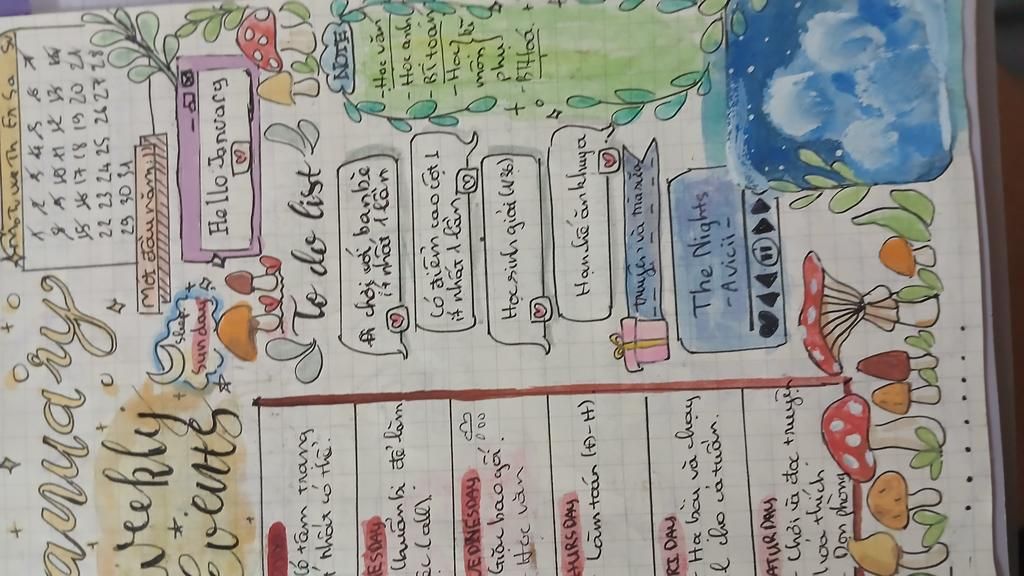 anuary
Mo Tu We Th Fr Sa Su
1 2 3 4 5 6 7
8 9 10 11 12 13 14
15 16 17 18 19 20 21
22 23 24 25 26 27 28
29 30 31
Một đầu năm uii
Hello January
Weekly
Events
Slut
Sunday
To do list
Đi chơi với bạn bè
ít nhất 1 lần
Có điểm cao cột 1
ít nhất 1 lần
Học sinh giỏi (U36)
Hạn chế ăn khuya
Thuyền và thành
The Nights
- Avicii -
NOTE
- Học văn
- Học anh
- BT toán
- Học bì
môn
phụ
- BT Hoá
Có tâm trạng
Nhất có thể.
ESDAY
Chuẩn bị để làm
WEDNESDAY
Giấc hao gội.
Học văn
HURSDAY
Làm toán (Đ-H)
RIDAY
Học bài và chạy
cho cả tuần.
ATURDAY
Chơi và đọc truyện
vừa thích
Dọn phòng